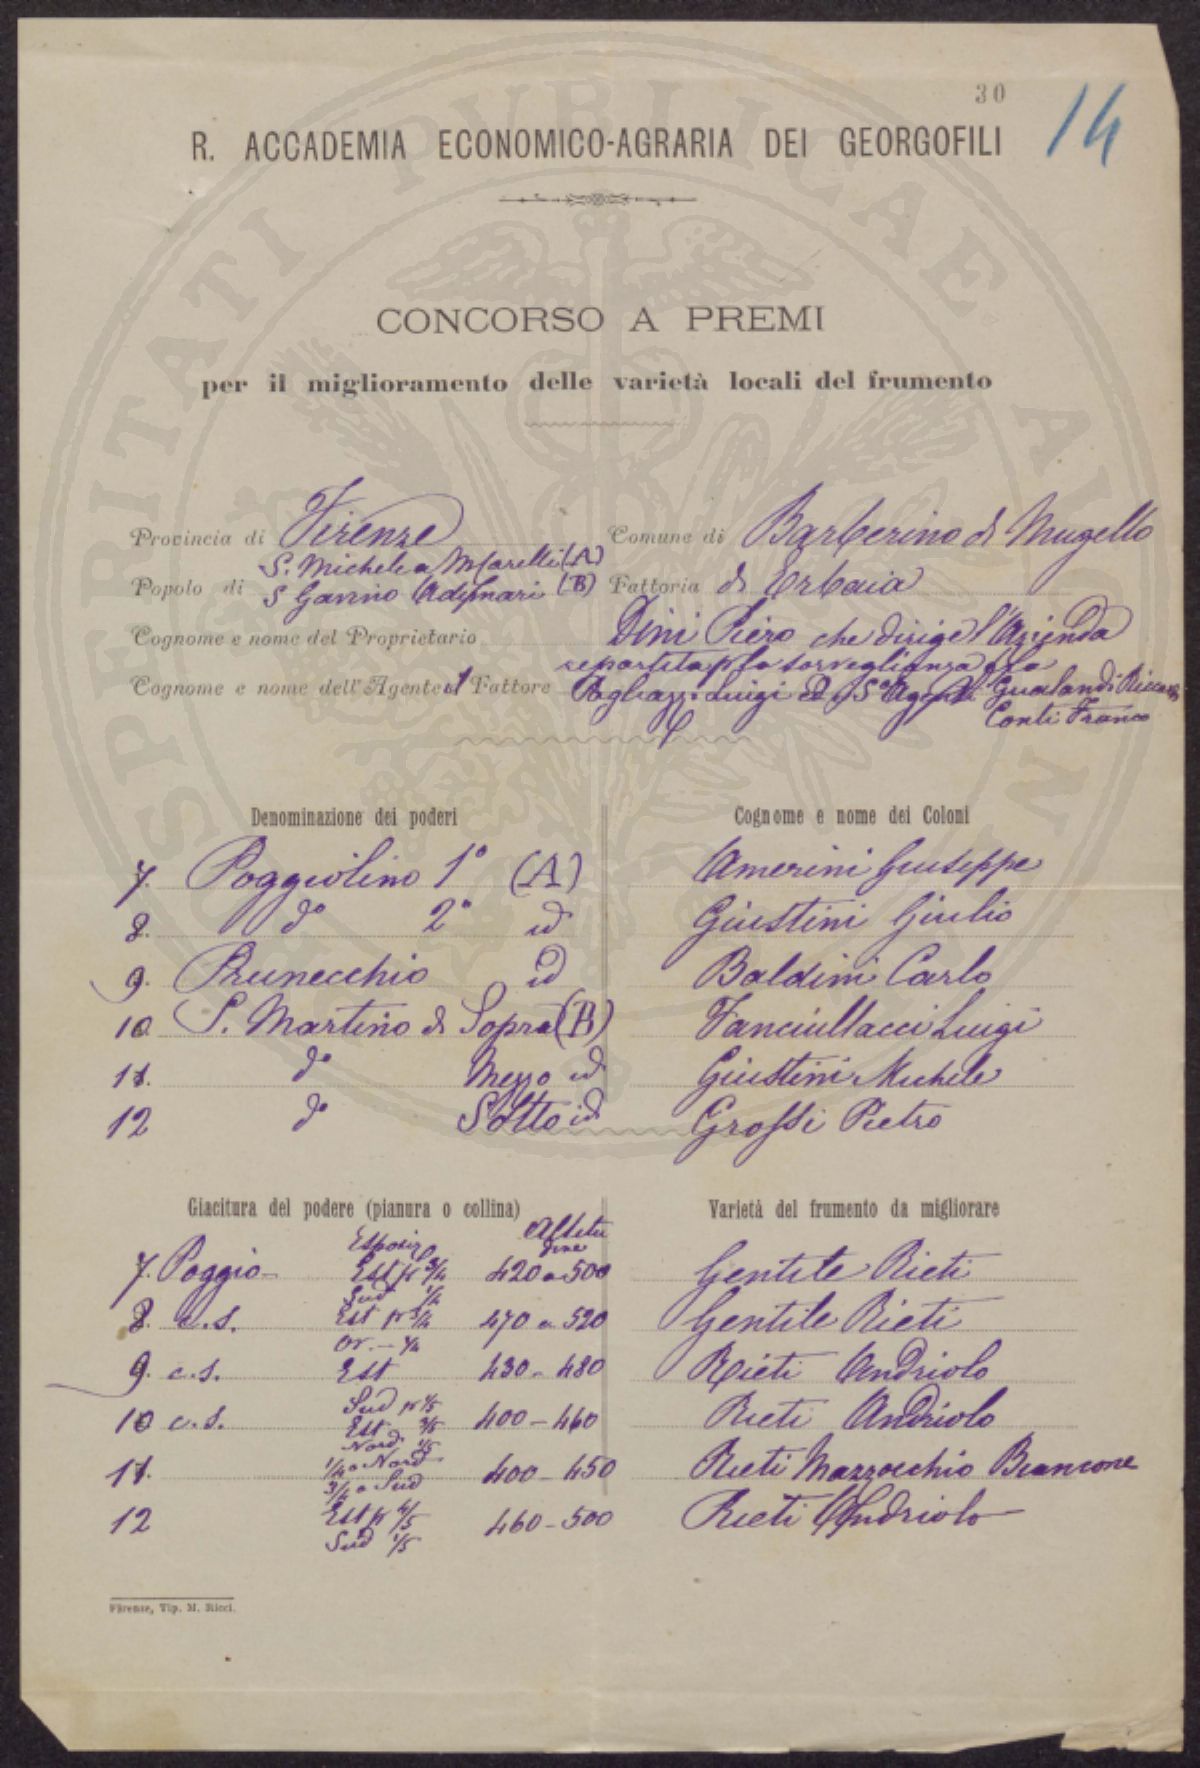 30
14
R. ACCADEMIA ECONOMICO-AGRARIA DEI GEORGOFILI
CONCORSO A PREMI
per il miglioramento delle varietà locali del frumento
Provincia di Firenze Comune di Barberino di Mugello
S. Michele a (A)
Popolo di S Gavino Adimari (B) Fattoria di Erbaia
Cognome e nome del Proprietario Dini Piero che dirige l'Azienda
repartita p la sorveglianza
Cognome e nome dell'Agente o Fattore Luigi ed Gualandi
Conti Franco
Denominazione dei poderi Cognome e nome dei Coloni
7. Poggiolino 1° (A) Amerini Giuseppe
8. do 2° id Giustini Giulio
9. Prunecchio id Baldini Carlo
10 S. Martino di Sopra (B) Fanciullacci Luigi
11. do Mezzo id Giustini Michele
12 do Sotto id Grossi Pietro
Giacitura del podere (pianura o collina) Varietà del frumento da migliorare
Esposiz Altitu
dine
7. Poggio Est pr 3/4 420 a 500 Gentile Rieti
Sud 1/4
8. c.s. Est pr 3/4 470 a 520 Gentile Rieti
Or. - 1/4
9. c.s. Est 430 - 480 Rieti Andriolo
Sud pr 1/5
10 c.s. Est 3/5 400 - 460 Rieti Andriolo
Nord 1/5
11. 1/4 a Nord 400 - 450 Rieti Mazzocchio Biancone
3/4 a Sud
12 Est pr 4/5 460 - 500 Rieti Andriolo
Sud 1/5
Firenze, Tip. M. Ricci.